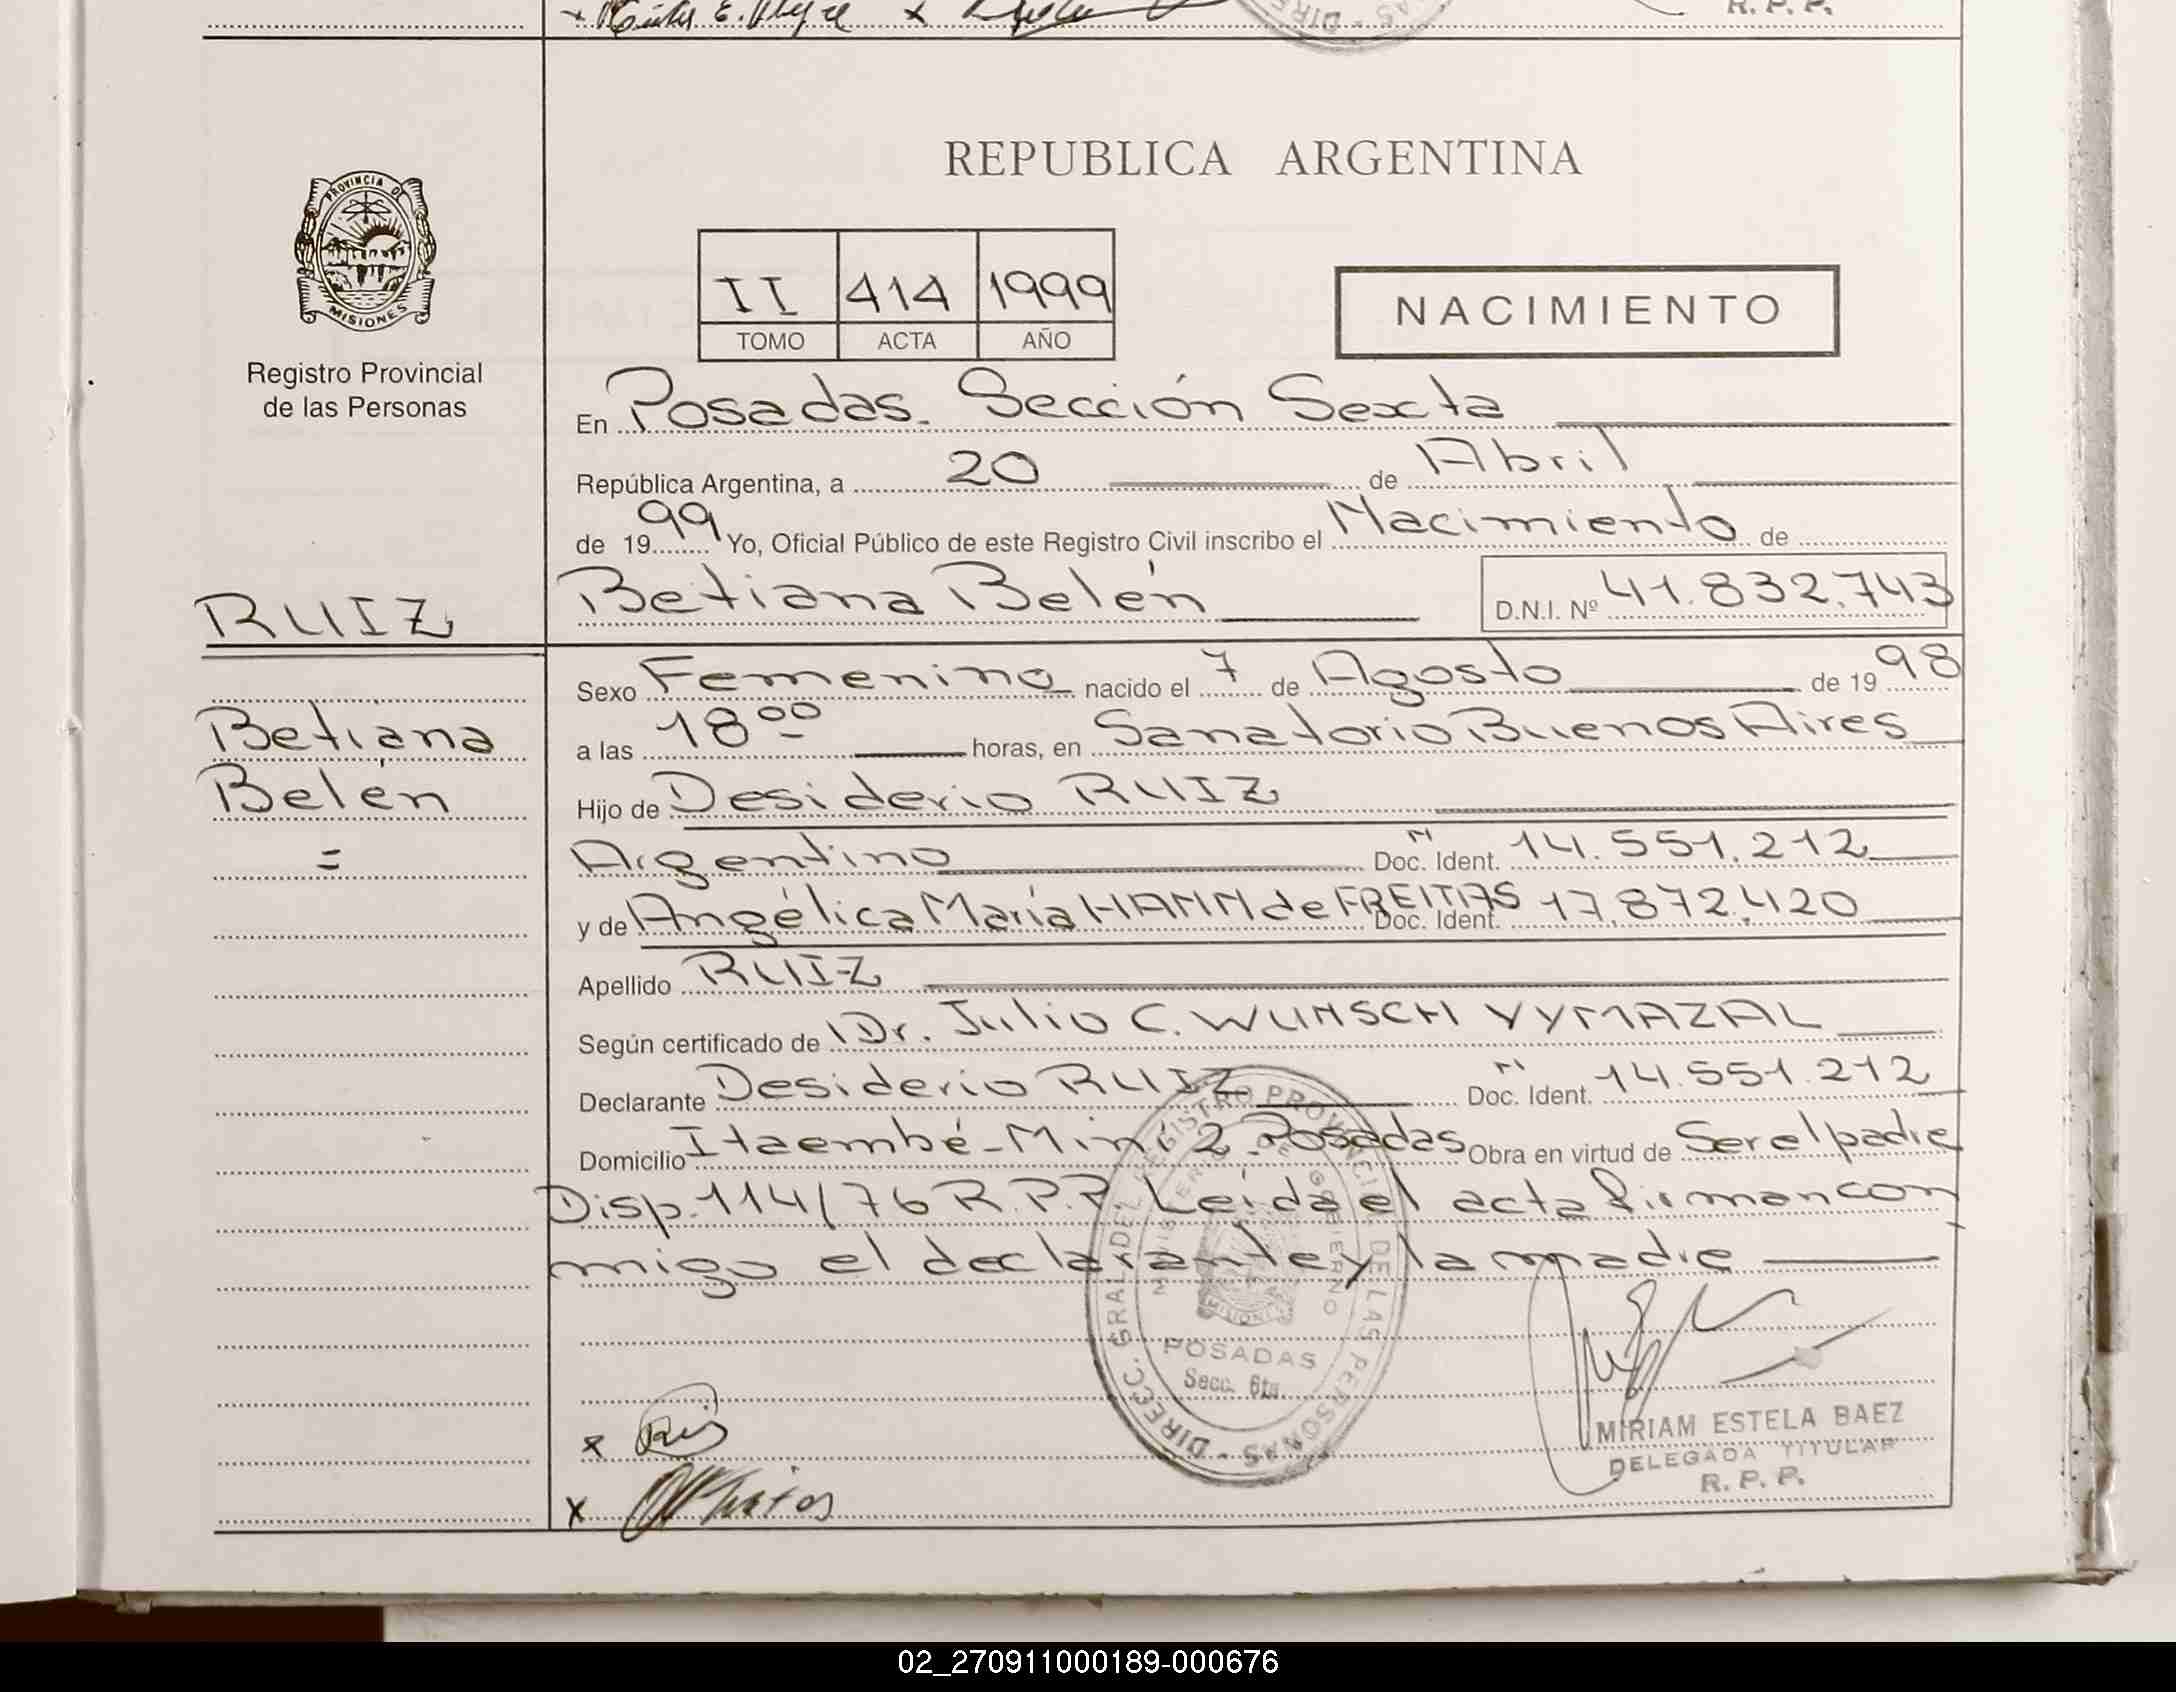 R. P. P.
REPUBLICA ARGENTINA
PROVINCIA DE
MISIONES
Registro Provincial
de las Personas
II 414 1999
TOMO ACTA AÑO
NACIMIENTO
En Posadas. Sección Sexta
República Argentina, a 20 de Abril
de 1999 Yo, Oficial Público de este Registro Civil inscribo el Nacimiento de
RUIZ
Betiana Belén D.N.I. Nº 41.832.743
Sexo Femenino nacido el 7 de Agosto de 1998
Betiana
a las 18 00 horas, en Sanatorio Buenos Aires
Belén
Hijo de Desiderio RUIZ
=
Argentino Doc. Ident. N 14.551.212
y de Angélica María HANN de FREITAS Doc. Ident. 17.872.420
Apellido RUIZ
Según certificado de Dr. Julio C. WUNSCH VYMAZAL
Declarante Desiderio RUIZ Doc. Ident. N 14.551.212
Domicilio Itaembé-Miní 2. Posadas Obra en virtud de Ser el padre
Disp. 114/76 R.P.P. Leída el acta firman con
migo el declarante y la madre
DIRECC. GRAL DEL REGISTRO PROVINCIAL DE LAS PERSONAS
MINISTERIO DE GOBIERNO
MISIONES
POSADAS
Secc. 6ta
MIRIAM ESTELA BAEZ
DELEGADA TITULAR
R. P. P.
x
x
02_270911000189-000676